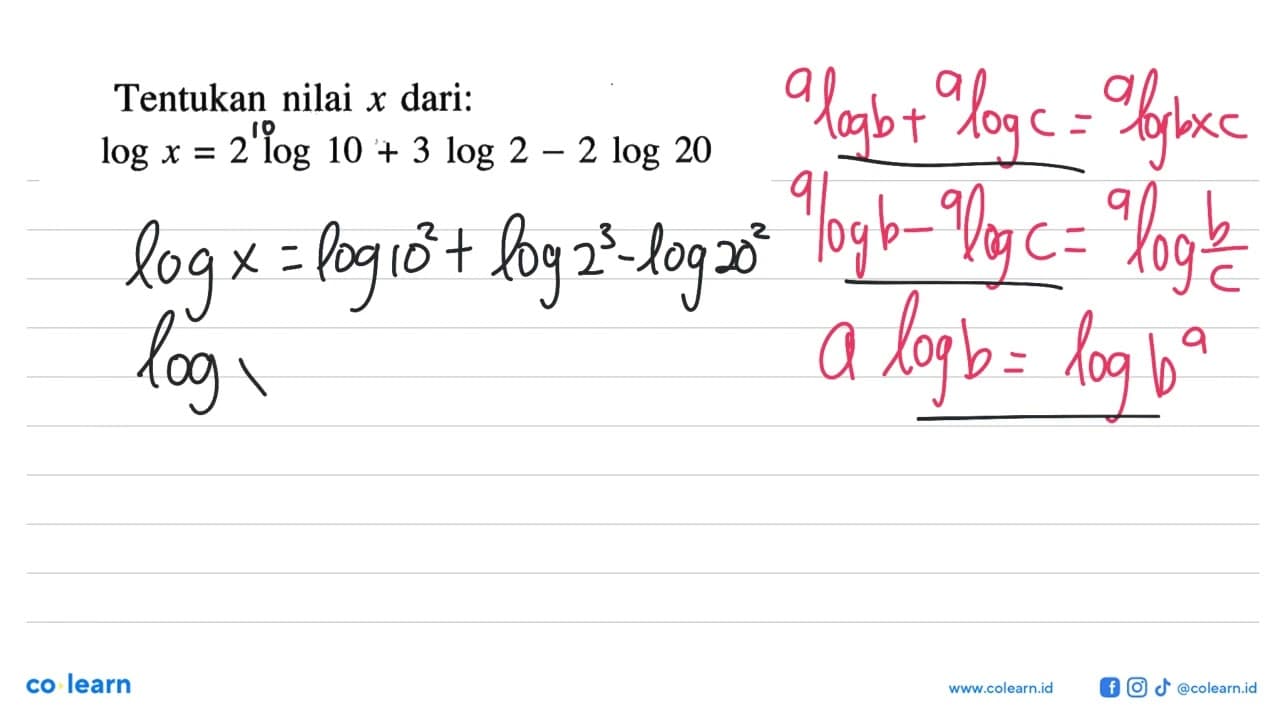 Tentukan nilai x dari:
log x = 2 ¹⁰log 10 + 3 log 2 − 2 log 20
log x = log 10² + log 2³ - log 20²
log
ᵃlog b + ᵃlog c = ᵃlog b x c
ᵃlog b - ᵃlog c = ᵃlog b/c
a log b = log bᵃ
co learn
www.colearn.id
@colearn.id